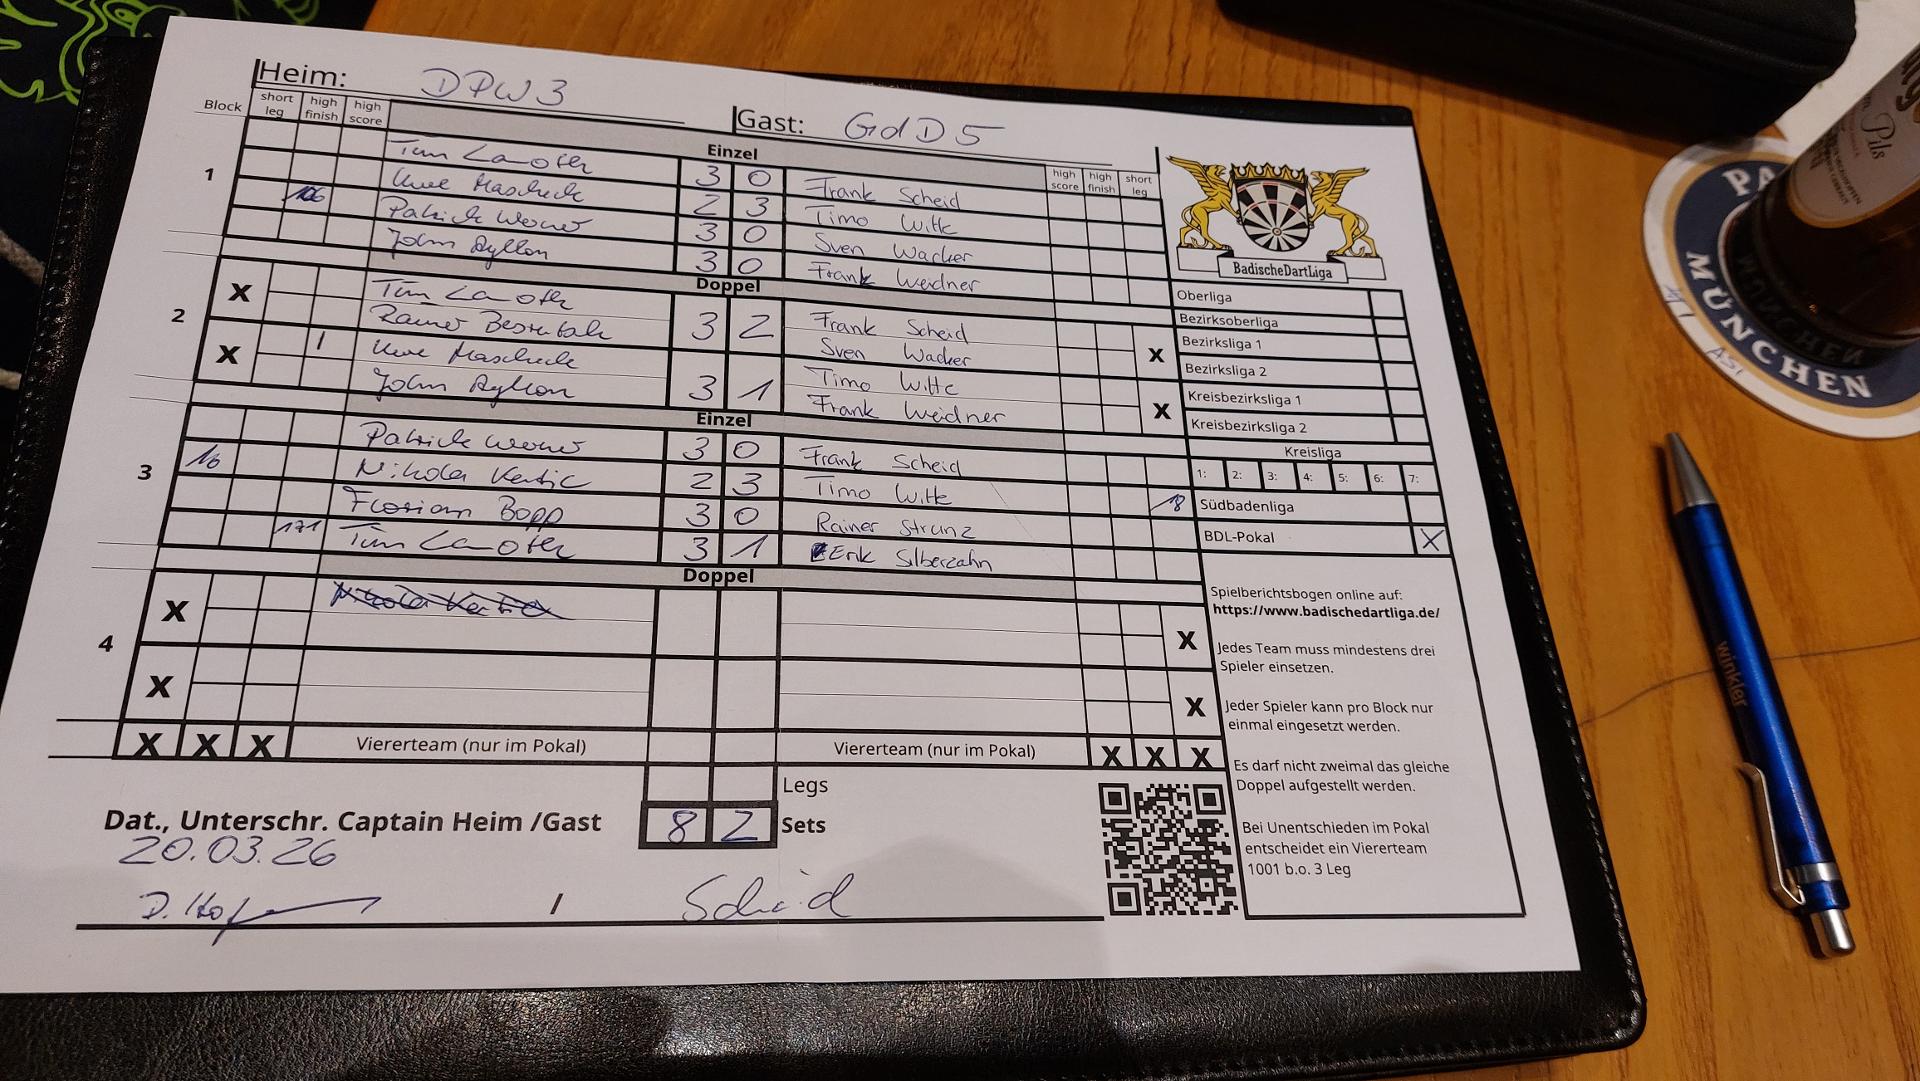 Heim: DPW3
Gast: GdD5
Block short leg high finish high score
Einzel
high score high finish short leg
1
Uwe Mascheck 2 3 Timo Witte
Tim 3 0 Frank Scheid
106 Patrick 3 0 Sven Wacker
John 3 0 Frank Weidner
Doppel
2
X Tim 3 2 Frank Scheid
Rainer Sven Wacker X
X Uwe Mascheck 3 1 Timo Witte
John Frank Weidner X
Einzel
3
Patrick 3 0 Frank Scheid
16 Nikola 2 3 Timo Witte 18
Florian Bopp 3 0 Rainer Strunz
171 Tim 3 1 Erik Silberzahn
Doppel
4
X X
X X
X X X Viererteam (nur im Pokal) Viererteam (nur im Pokal) X X X
Legs
Dat., Unterschr. Captain Heim /Gast 8 2 Sets
20.03.26
/ Scheid
BadischeDartLiga
Oberliga
Bezirksoberliga
Bezirksliga 1
Bezirksliga 2
Kreisbezirksliga 1
Kreisbezirksliga 2
Kreisliga
1: 2: 3: 4: 5: 6: 7:
Südbadenliga
BDL-Pokal X
Spielberichtsbogen online auf:
https://www.badischedartliga.de/
Jedes Team muss mindestens drei
Spieler einsetzen.
Jeder Spieler kann pro Block nur
einmal eingesetzt werden.
Es darf nicht zweimal das gleiche
Doppel aufgestellt werden.
Bei Unentschieden im Pokal
entscheidet ein Viererteam
1001 b.o. 3 Leg
winkler
MÜNCHEN
Pils